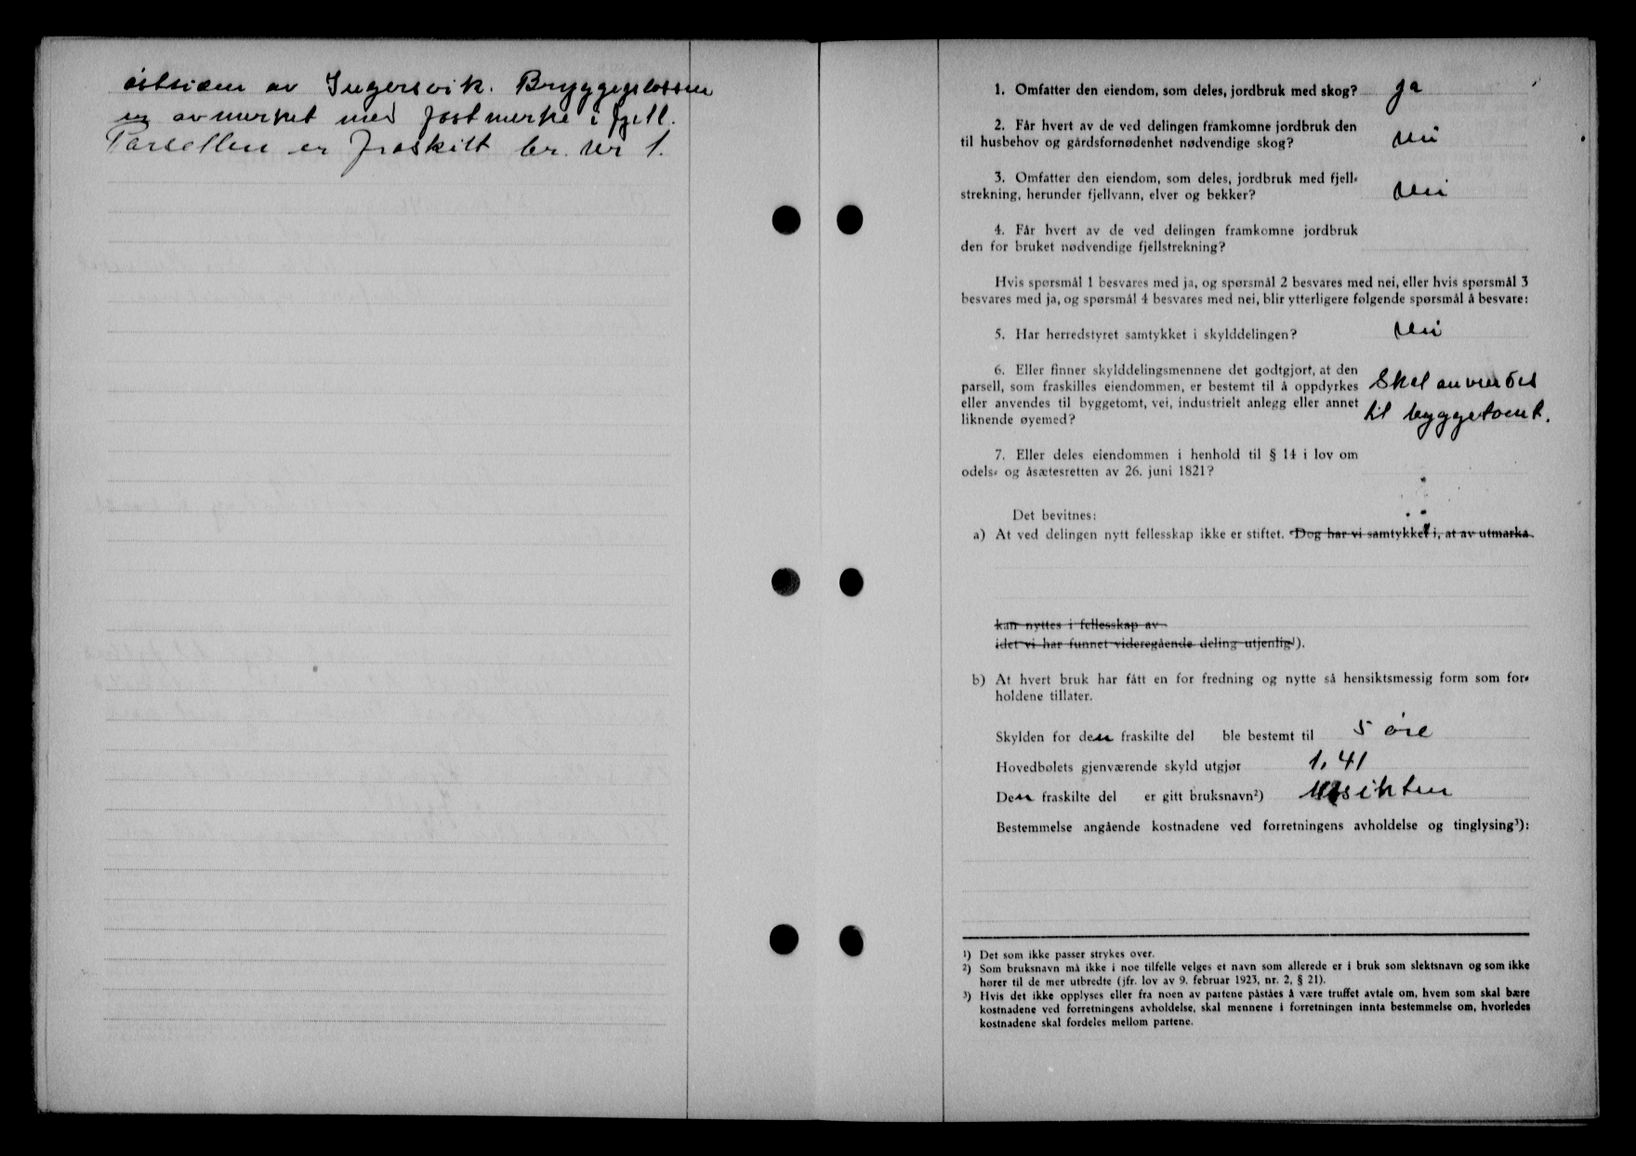 østsiden av Ingersvik. Bryggeplassen
er avmerket med fastmerke i fjell.
Parsellen er fraskilt br. nr 1.
1. Omfatter den eiendom, som deles, jordbruk med skog? ja
2. Får hvert av de ved delingen framkomne jordbruk den
til husbehov og gårdsfornødenhet nødvendige skog? nei
3. Omfatter den eiendom, som deles, jordbruk med fjell-
strekning, herunder fjellvann, elver og bekker? nei
4. Får hvert av de ved delingen framkomne jordbruk
den for bruket nødvendige fjellstrekning?
Hvis spørsmål 1 besvares med ja, og spørsmål 2 besvares med nei, eller hvis spørsmål 3
besvares med ja, og spørsmål 4 besvares med nei, blir ytterligere følgende spørsmål å besvare:
5. Har herredstyret samtykket i skylddelingen? nei
6. Eller finner skylddelingsmennene det godtgjort, at den
parsell, som fraskilles eiendommen, er bestemt til å oppdyrkes
eller anvendes til byggetomt, vei, industrielt anlegg eller annet
liknende øyemed?
Skal anvendes
til byggetomt.
7. Eller deles eiendommen i henhold til § 14 i lov om
odels- og åsætesretten av 26. juni 1821?
Det bevitnes:
a) At ved delingen nytt fellesskap ikke er stiftet. Dog har vi samtykket i, at av utmarka
kan nyttes i fellesskap av
idet vi har funnet videregående deling utjenlig¹).
b) At hvert bruk har fått en for fredning og nytte så hensiktsmessig form som for-
holdene tillater.
Skylden for den fraskilte del ble bestemt til 5 øre
Hovedbølets gjenværende skyld utgjør 1,41
Den fraskilte del er gitt bruksnavn²) Utsikten
Bestemmelse angående kostnadene ved forretningens avholdelse og tinglysing³):
¹) Det som ikke passer strykes over.
²) Som bruksnavn må ikke i noe tilfelle velges et navn som allerede er i bruk som slektsnavn og som ikke
hører til de mer utbredte (jfr. lov av 9. februar 1923, nr. 2, § 21).
³) Hvis det ikke opplyses eller fra noen av partene påståes å være truffet avtale om, hvem som skal bære
kostnadene ved forretningens avholdelse, skal mennene i forretningen innta bestemmelse om, hvorledes
kostnadene skal fordeles mellom partene.